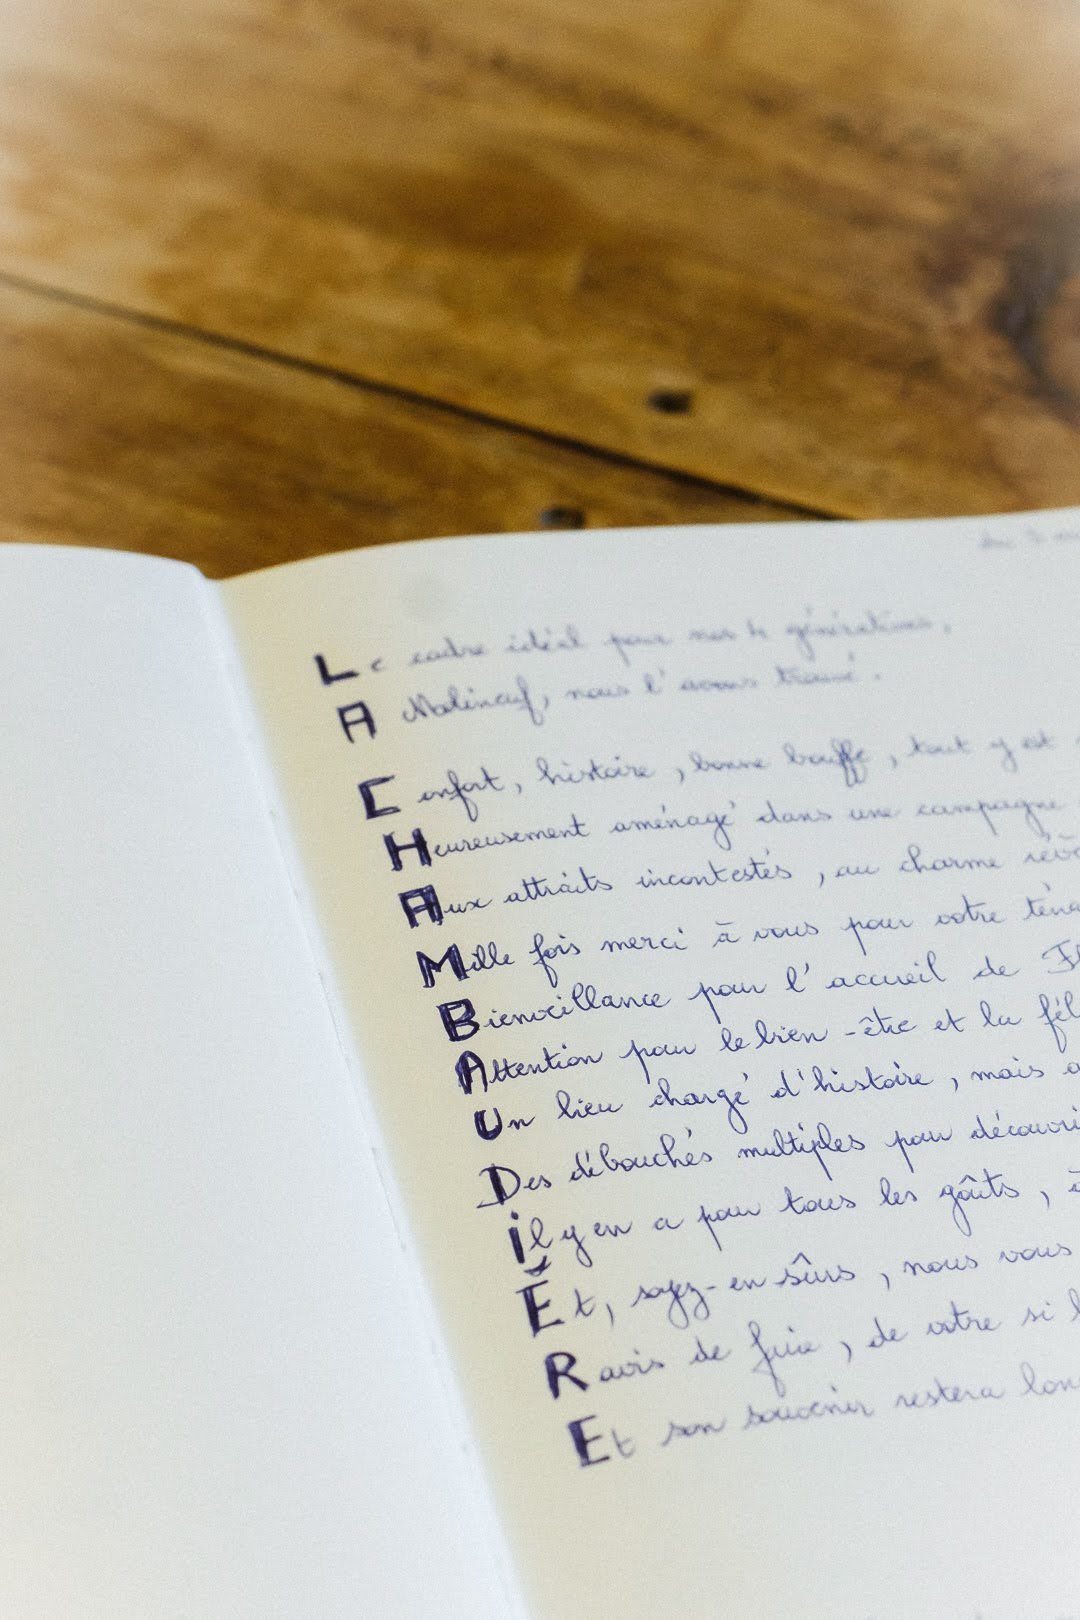 Le cadre idéal pour nos 4 générations,
A Molineuf, nous l'avons trouvé.
Confort, histoire, bonne bouffe, tout y est
Heureusement aménagé dans une campagne
Aux attraits incontestés, au charme
Mille fois merci à vous pour votre
Bienveillance pour l'accueil de
Attention pour le bien-être et la
Un lieu chargé d'histoire, mais
Des débouchés multiples pour
il y en a pour tous les goûts,
Et, soyez-en sûrs, nous vous
Ravis de faire, de votre si
Et son souvenir restera